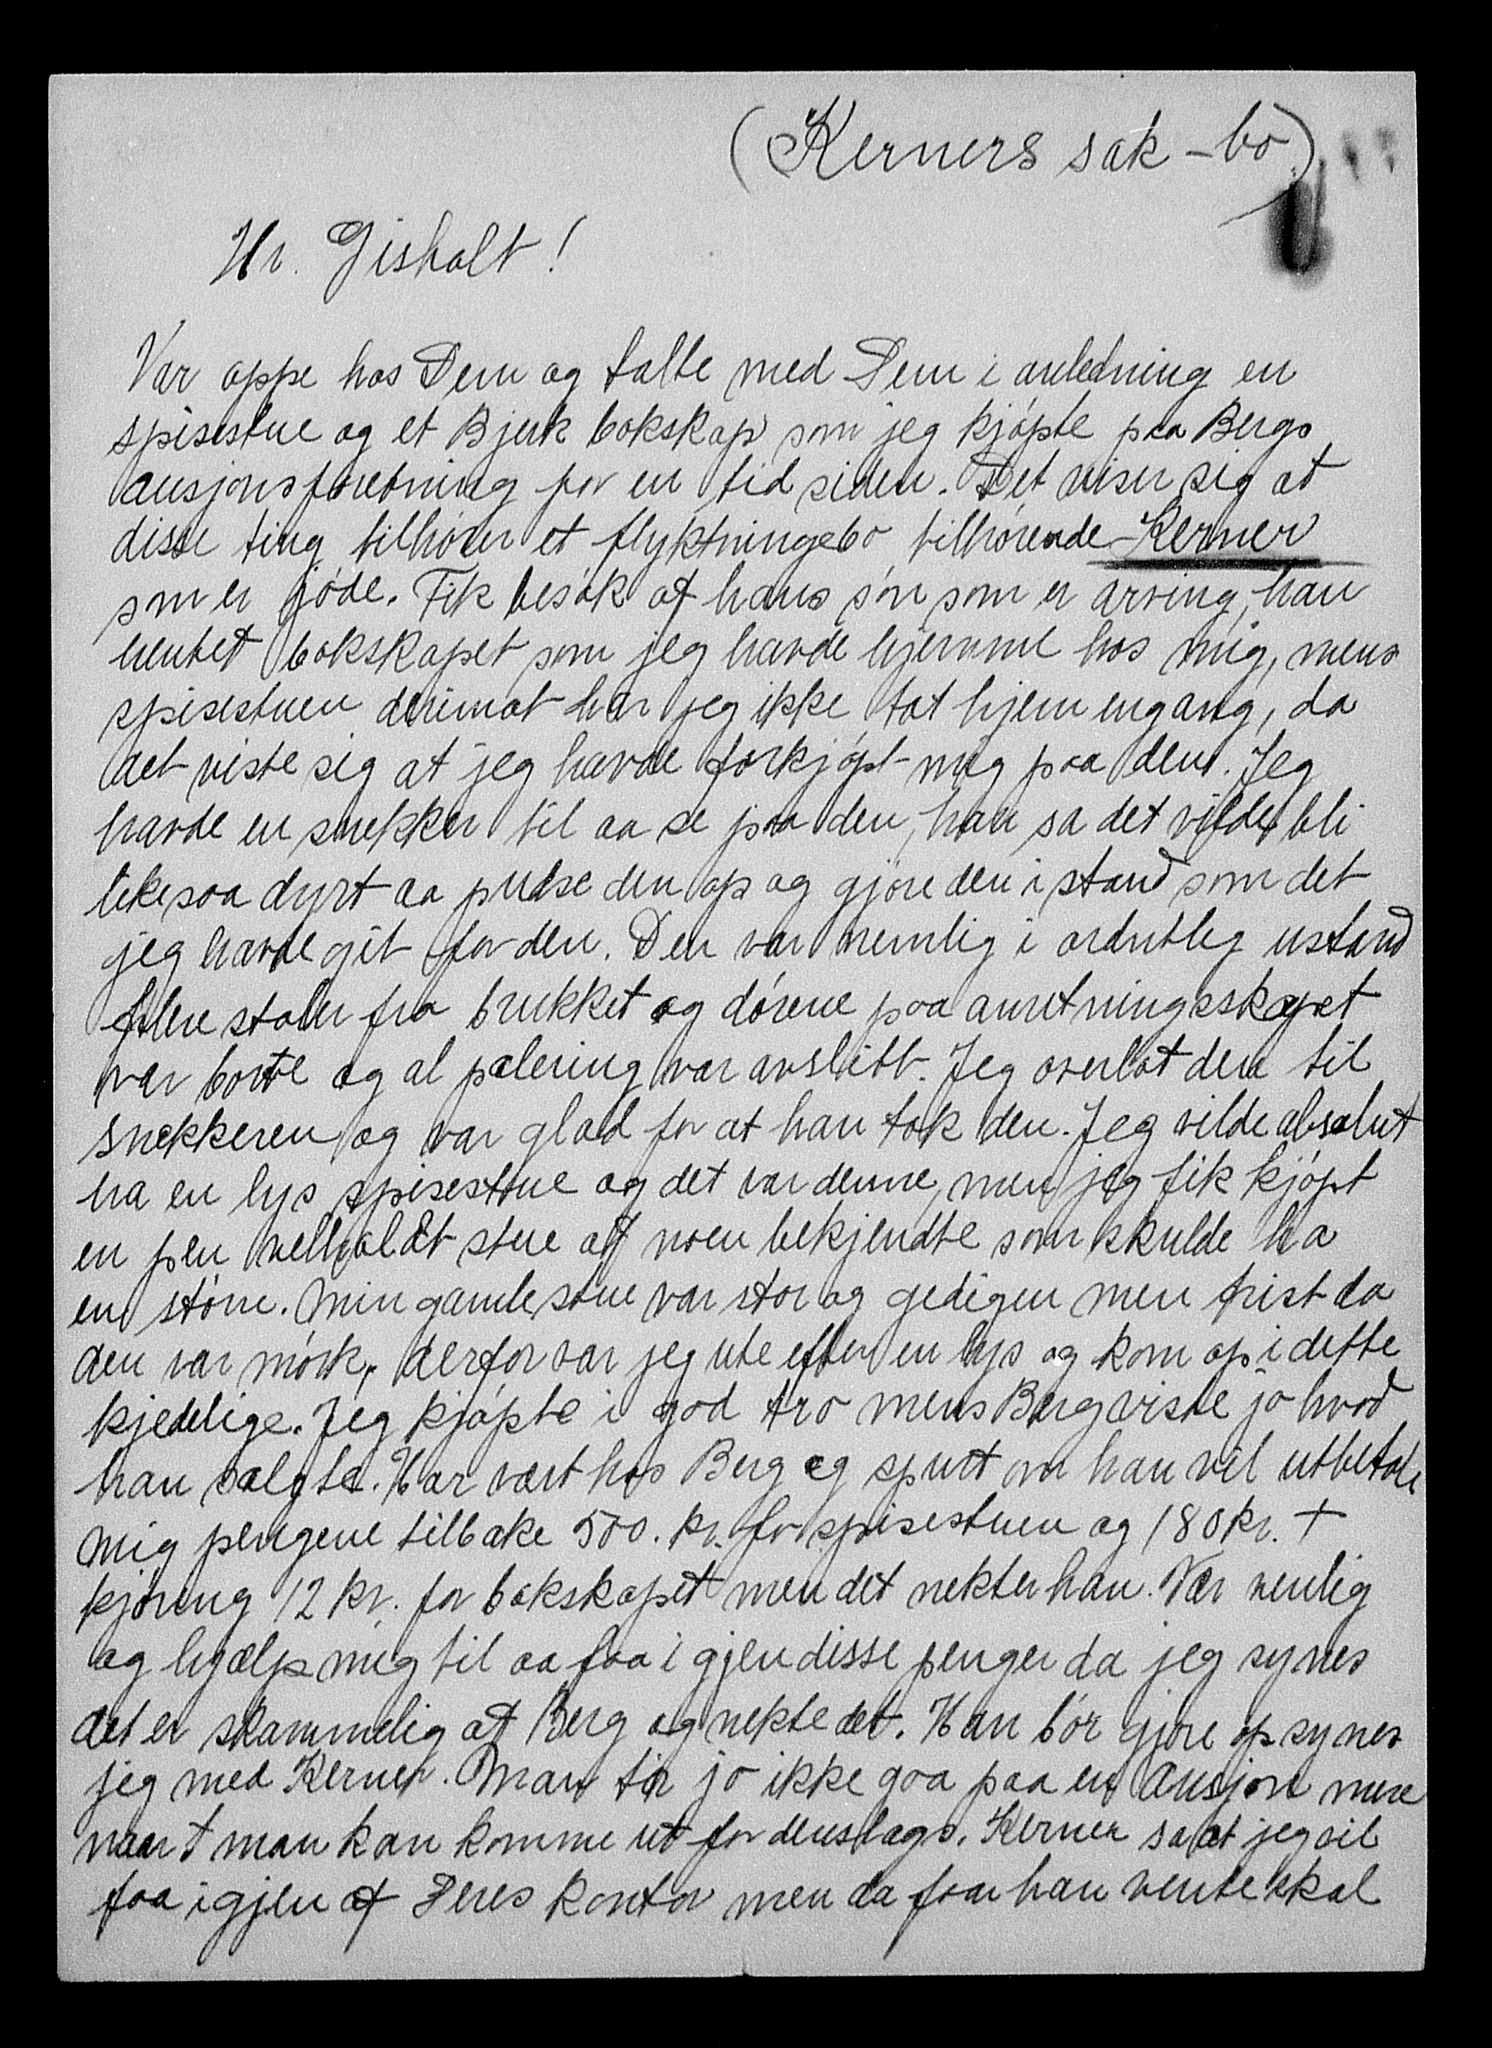 (Kerners sak - bo)
Hr. Gisholt!
Var oppe hos Dem og talte med Dem i anledning en
spisestue og et Bjerk bokskap som jeg kjøpte paa Bergs
ausjonsforetning for en tid siden. Det viser sig at
disse ting tilhører et flyktningebo tilhørende Kerner
som er jøde. Fik besøk af hans søn som er arving, han
hentet bokskapet som jeg havde hjemme hos mig, mens
spisestuen derimot har jeg ikke tat hjem engang, da
det viste sig at jeg havde forkjøpt mig paa den. Jeg
havde en snekker til aa se paa den, han sa det vilde bli
likesaa dyrt aa pusse den op og gjøre den i stand som det
jeg havde git for den. Den var nemlig i ordntlig ustand
flere stoler fra brukket og dørene paa anretningsskapet
var borte og al polering var avslitt. Jeg overlot den til
snekkeren og var glad for at han tok den. Jeg vilde absolut
ha en lys spisestue og det var denne, men jeg fik kjøpt
en pen velholdt stue aff noen bekjendte som skulde ha
en større. Min gamle stue var stor og gedigen men trist da
den var mørk, derfor var jeg ute efter en lys og kom op i dette
kjedelige. Jeg kjøpte i god tro mens Berg viste jo hvad
han solgte. Har vært hos Berg og spurt om han vil utbetale
mig pengene tilbake 500. kr. for spisestuen og 180 kr. +
kjøring 12 kr. for bokskapet men det nekter han. Vær venlig
og hjælp mig til aa faa i gjen disse penger da jeg synes
det er skammelig at Berg og nekte det. Han bør gjøre op synes
jeg med Kerner. Man tør jo ikke gaa paa en ausjon mere
naar man kan komme ut for denslags. Kerner sa at jeg vil
faa igjen af Deres kontor men da faar han vente skal